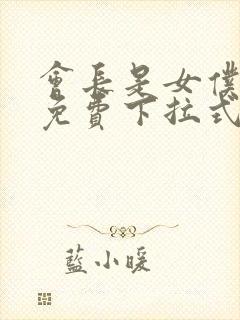 會長是女僕
免費下拉式
藍小暖